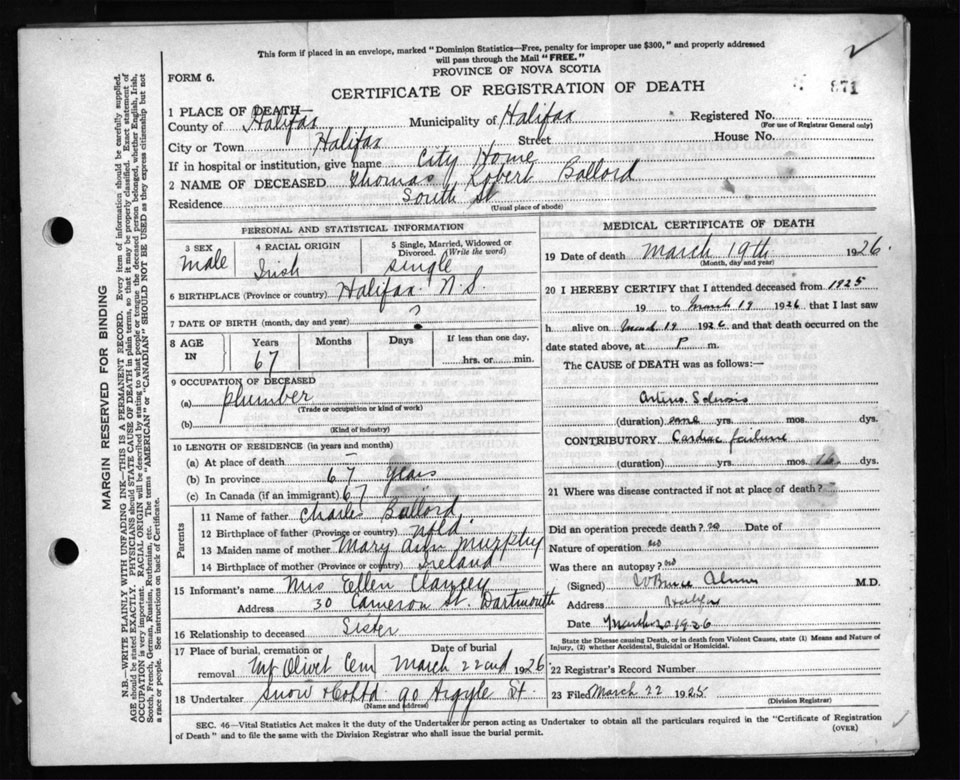 This form if placed in an envelope, marked "Dominion Statistics—Free, penalty for improper use $300," and properly addressed
will pass through the Mail "FREE."
PROVINCE OF NOVA SCOTIA
FORM 6.
CERTIFICATE OF REGISTRATION OF DEATH
871
1 PLACE OF DEATH—
County of Halifax Municipality of Halifax Registered No.
(For use of Registrar General only)
City or Town Halifax Street House No.
If in hospital or institution, give name City Home
2 NAME OF DECEASED Thomas Robert Ballord
Residence South St
(Usual place of abode)
PERSONAL AND STATISTICAL INFORMATION
3 SEX male
4 RACIAL ORIGIN Irish
5 Single, Married, Widowed or Divorced. (Write the word) single
6 BIRTHPLACE (Province or country) Halifax N.S.
7 DATE OF BIRTH (month, day and year) ?
8 AGE IN Years Months Days If less than one day,
67 hrs. or min.
9 OCCUPATION OF DECEASED
(a) plumber
(Trade or occupation or kind of work)
(b)
(Kind of industry)
10 LENGTH OF RESIDENCE (in years and months)
(a) At place of death —
(b) In province 67 Years
(c) In Canada (if an immigrant) 67
Parents
11 Name of father Charles Ballord
12 Birthplace of father (Province or country) Nfld.
13 Maiden name of mother Mary Ann Murphy
14 Birthplace of mother (Province or country) Ireland
15 Informant's name Mrs Ellen Clancey
Address 30 Cameron St. Dartmouth
16 Relationship to deceased Sister
17 Place of burial, cremation or removal Mt Olivet Cem
Date of burial March 22nd 1926
18 Undertaker Snow & Co Ltd 90 Argyle St.
(Name and address)
MEDICAL CERTIFICATE OF DEATH
19 Date of death March 19th 1926
(Month, day and year)
20 I HEREBY CERTIFY that I attended deceased from 1925
19 to March 19 1926 that I last saw
h alive on March 19 1926 and that death occurred on the
date stated above, at P m.
The CAUSE OF DEATH was as follows:—
Arterio Sclerosis
(duration) yrs. mos. dys.
CONTRIBUTORY Cardiac failure
(duration) yrs. mos. dys.
21 Where was disease contracted if not at place of death?
Did an operation precede death? no Date of
Nature of operation no
Was there an autopsy? no
(Signed) M.D.
Address Halifax
Date March 20 1926
State the Disease causing Death, or in death from Violent Causes, state (1) Means and Nature of
Injury, (2) whether Accidental, Suicidal or Homicidal.
22 Registrar's Record Number
23 Filed March 22 1925
(Division Registrar)
SEC. 46—Vital Statistics Act makes it the duty of the Undertaker or person acting as Undertaker to obtain all the particulars required in the "Certificate of Registration
of Death" and to file the same with the Division Registrar who shall issue the burial permit.
(OVER)
MARGIN RESERVED FOR BINDING
N.B.—WRITE PLAINLY WITH UNFADING INK—THIS IS A PERMANENT RECORD. Every item of information should be carefully supplied.
AGE should be stated EXACTLY. PHYSICIANS should STATE CAUSE OF DEATH in plain terms, so that it may be properly classified. Exact statement of
OCCUPATION is very important. RACIAL ORIGIN will be described by stating to what people or tongue the deceased person belonged, whether English, Irish,
Scotch, French, German, Russian, Ruthenian, etc. The terms "AMERICAN" or "CANADIAN" SHOULD NOT BE USED as they express citizenship but not
a race or people. See instructions on back of Certificate.